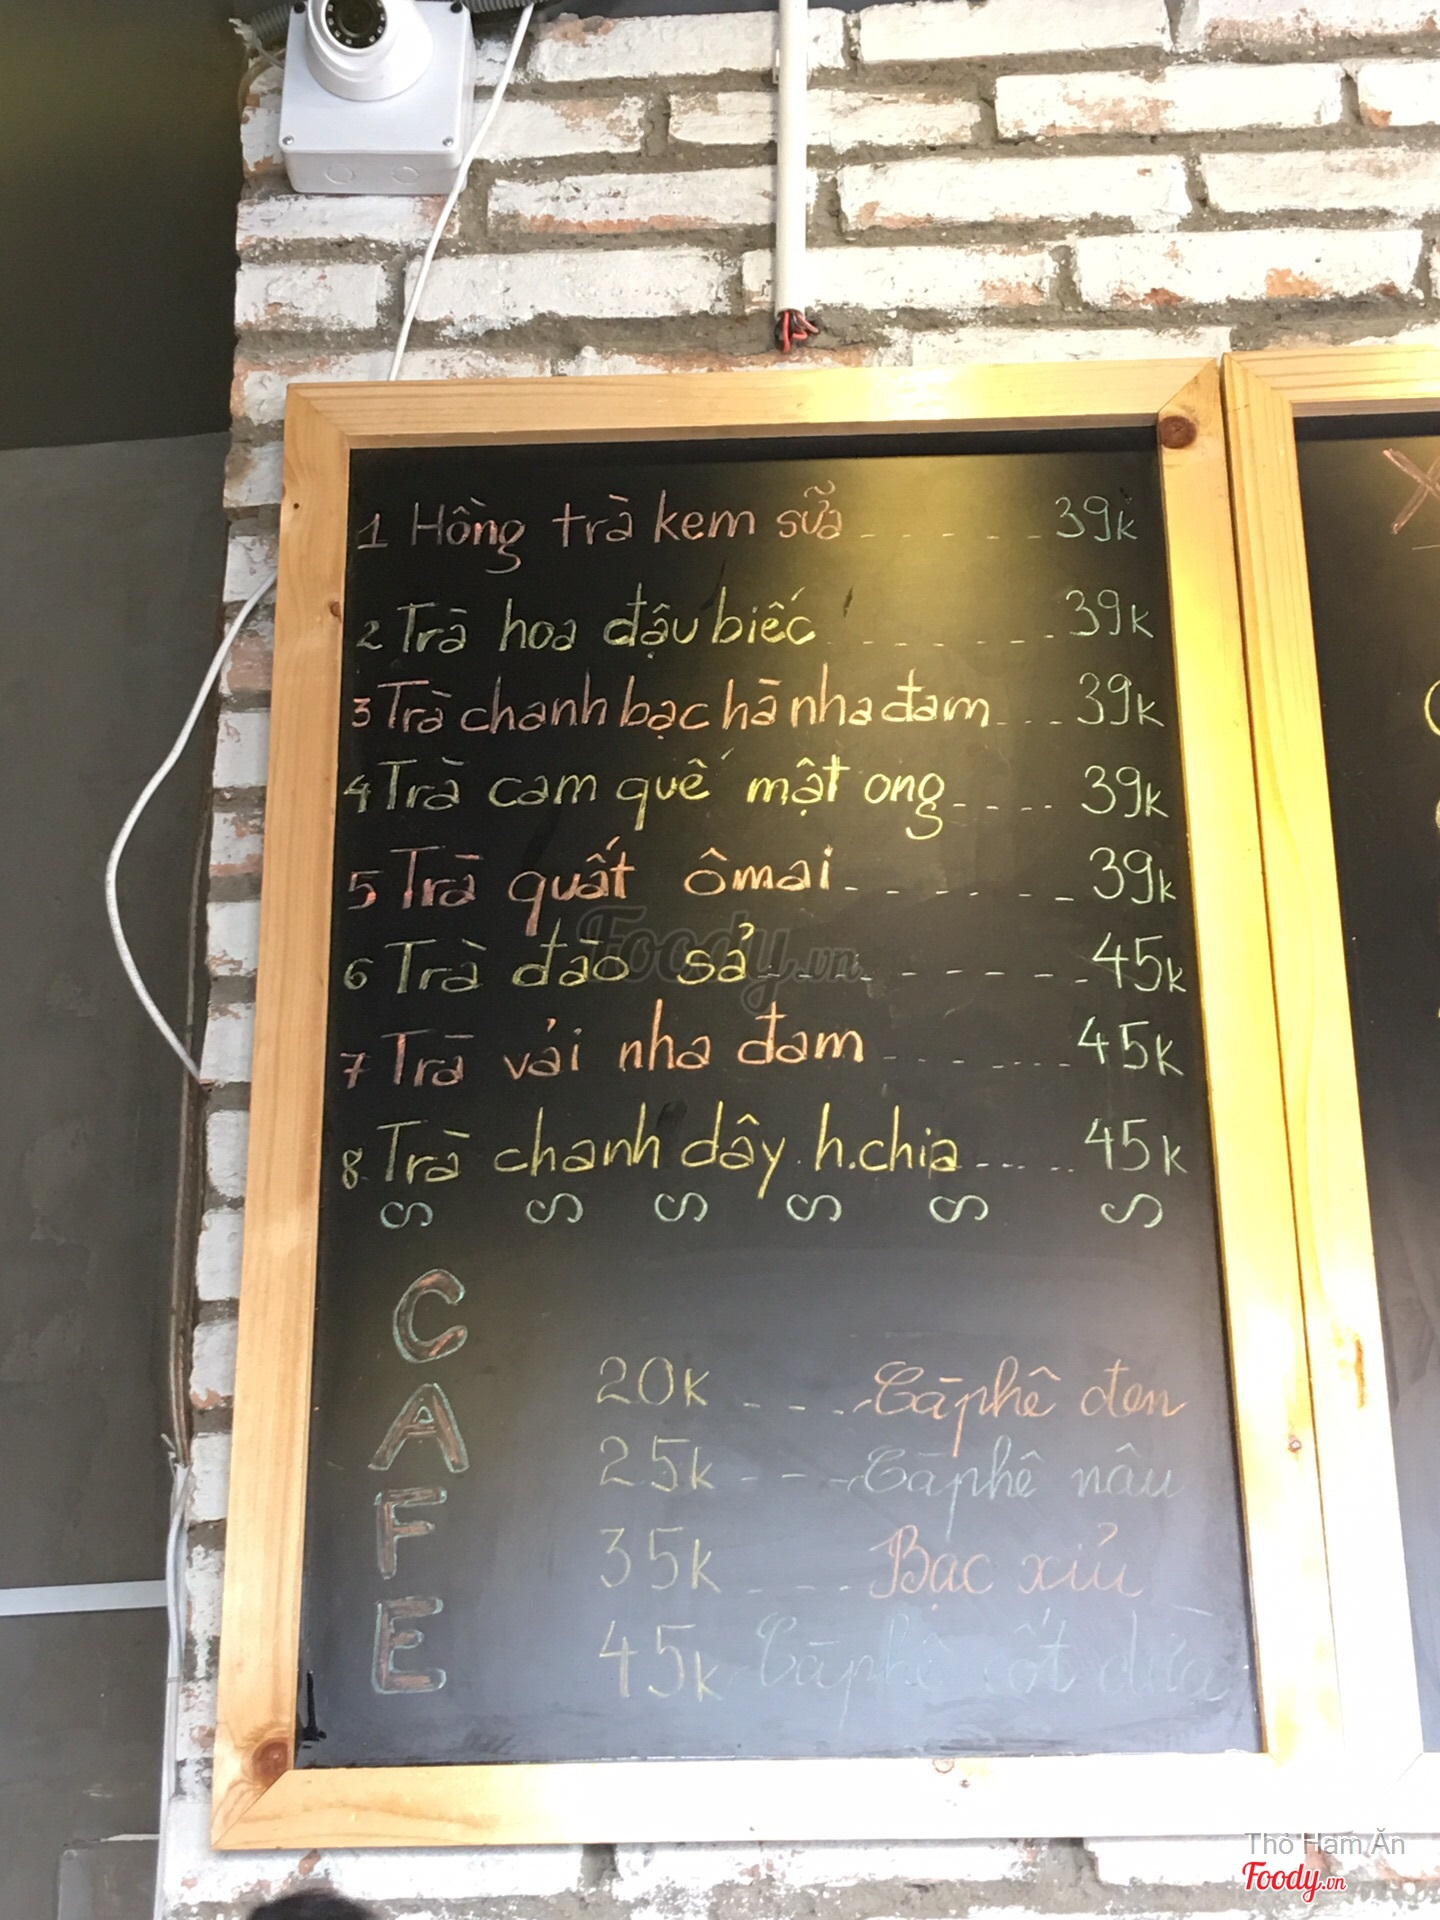 1 Hồng trà kem sữa ----- 39k
2 Trà hoa đậu biếc ------ 39k
3 Trà chanh bạc hà nha đam --- 39k
4 Trà cam quế mật ong ---- 39k
5 Trà quất ômai ------ 39k
6 Trà đào sả -------- 45k
7 Trà vải nha đam ------ 45k
8. Trà chanh dây h.chia ----- 45k
S S S S S S
CAFE
20k ---- Cà phê đen
25k ---- Cà phê nâu
35k ---- Bạc xỉu
45k Cà phê cốt dừa
Foody.vn
Thỏ Ham Ăn
Foody.vn